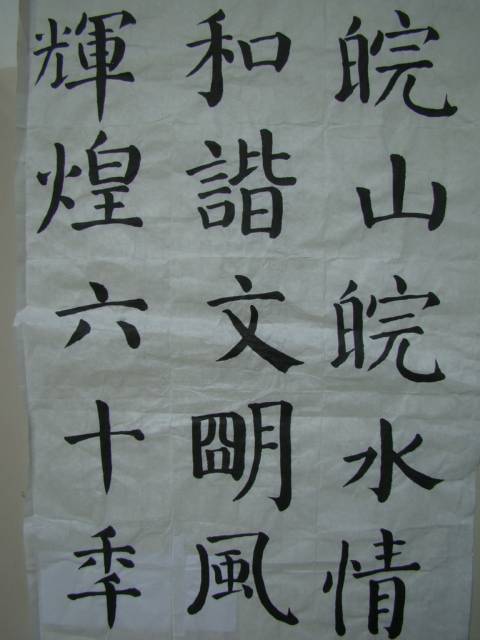 皖山皖水情
和諧文朙風
輝煌六十秊